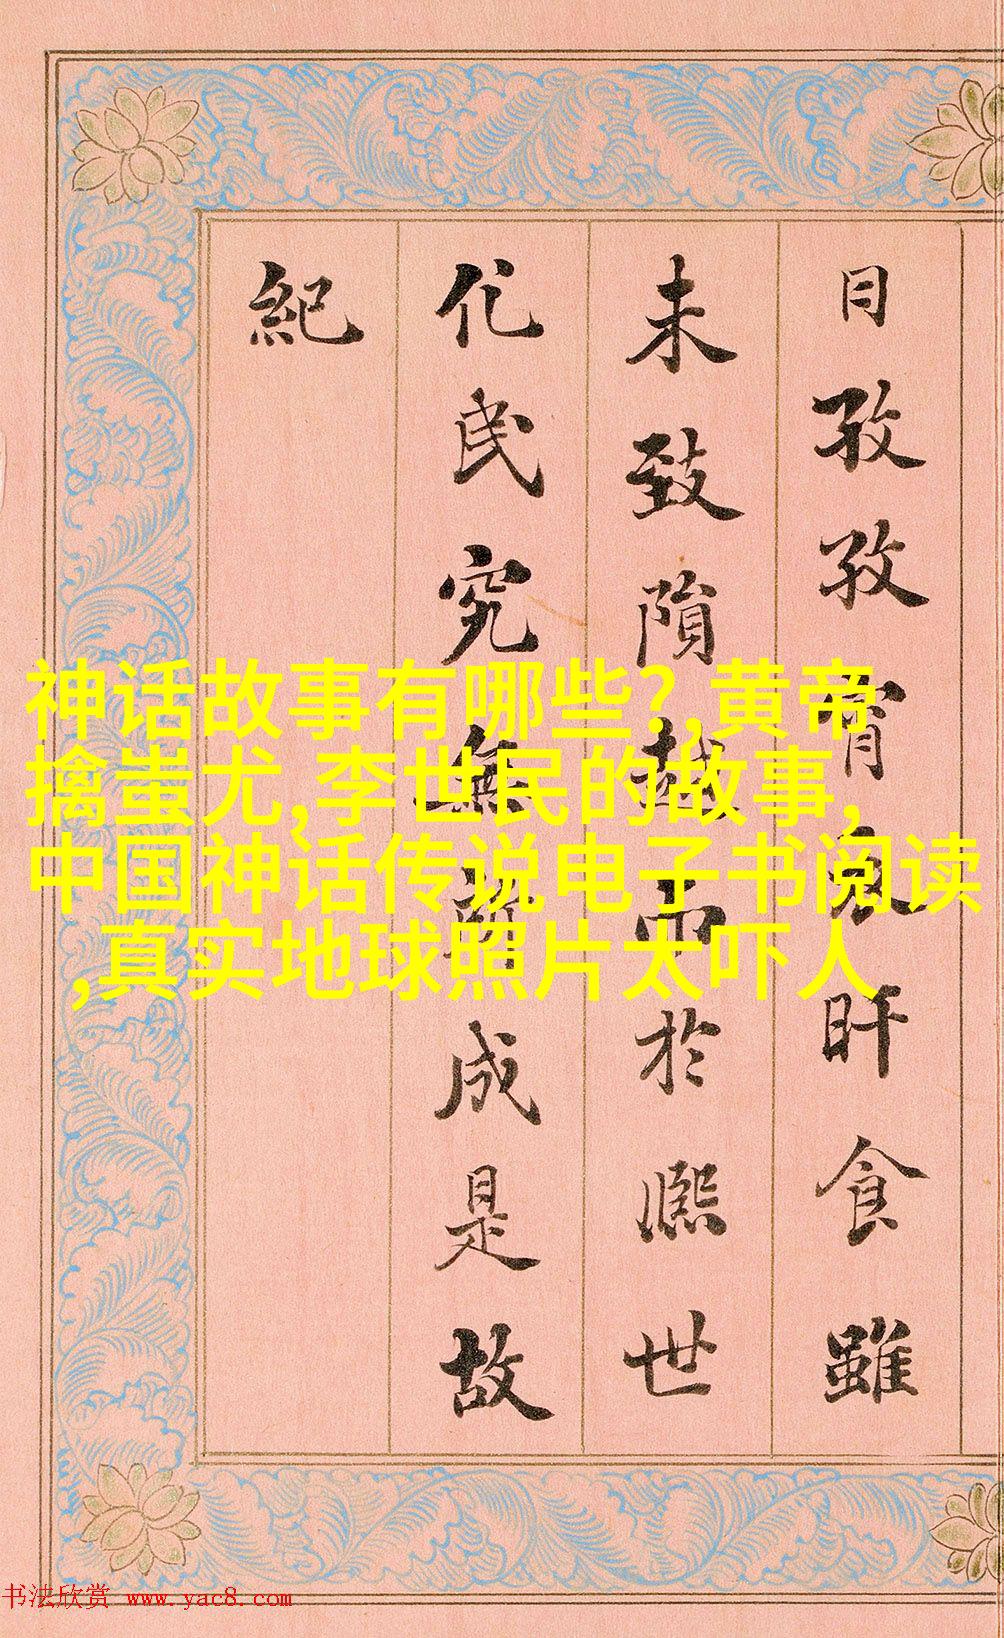 日孜孜宵衣旰食雖
未致隕越而於熙世
化民究無所成是故
紀
神话故事有哪些?,黄帝
擒蚩尤,李世民的故事,
中国神话传说电子书阅读
,真实地球照片太吓人
书法欣赏 www.yac8.com